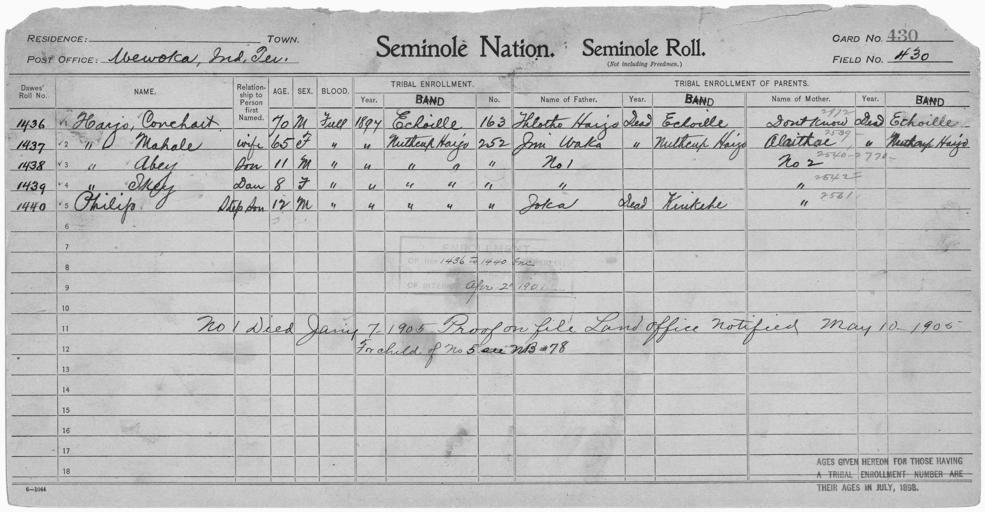 RESIDENCE: TOWN.
POST OFFICE: Wewoka, Ind. Ter.
Seminole Nation. Seminole Roll.
(Not including Freedmen.)
CARD NO. 430
FIELD NO. 430
Dawes' Roll No. NAME. Relationship to Person first Named. AGE. SEX. BLOOD. TRIBAL ENROLLMENT. TRIBAL ENROLLMENT OF PARENTS.
Year. BAND No. Name of Father. Year. BAND Name of Mother. Year. BAND
1436 1 Harjo, Conchart 70 M Full 1897 Echoille 163 Klotho Harjo Dead Echoille Dont Know Dead Echoille
1437 2 " Mahale wife 65 F " " Nuthcup Harjo 252 Jim Waka " Nuthcup Harjo " Nuthcup Harjo
1438 3 " Abey Son 11 M " " " " " No 1 No 2
1439 4 " Skey Dau 8 F " " " " " " "
1440 5 Philip Step Son 12 M " " " " " Joka Dead "
6
7
ENROLLMENT
8 OF 1436 to 1440 Inc
9 Apr 2 1901
10
11 No 1 Died Jany 7, 1905 Proof on file Land office notified May 10 1905
12 For child of No 5 see NB 78
13
14
15
16
17
18
6—1044
AGES GIVEN HEREON FOR THOSE HAVING
A TRIBAL ENROLLMENT NUMBER ARE
THEIR AGES IN JULY, 1898.